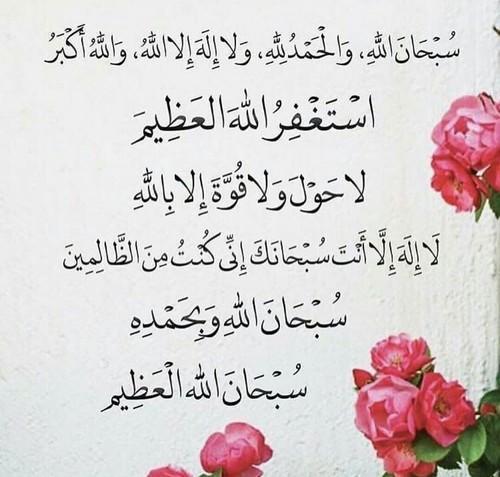 سُبْحَانَ اللهِ، وَالْحَمْدُ لِلَّهِ، وَلَا إِلَهَ إِلَا اللهُ، وَاللهُ أَكْبَرُ
اسْتَغْفِرُ اللهَ العَظِيمَ
لا حَوْلَ وَلا قُوَّةَ إِلا بِاللهِ
لَا إِلَهَ إِلَّا أَنْتَ سُبْحَانَكَ إِنِّي كُنْتُ مِنَ الظَّالِمِينَ
سُبْحَانَ اللهِ وَبِحَمْدِهِ
سُبْحَانَ اللهِ الْعَظِيمِ